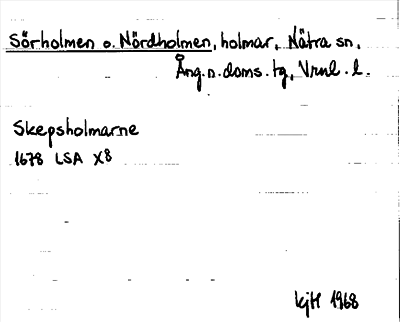 Sörholmen o. Nördholmen, holmar, Nätra sn,
Ång.n.doms.tg, Vrnl.l.
Skepsholmarne
1678 LSA X8
kjH 1968